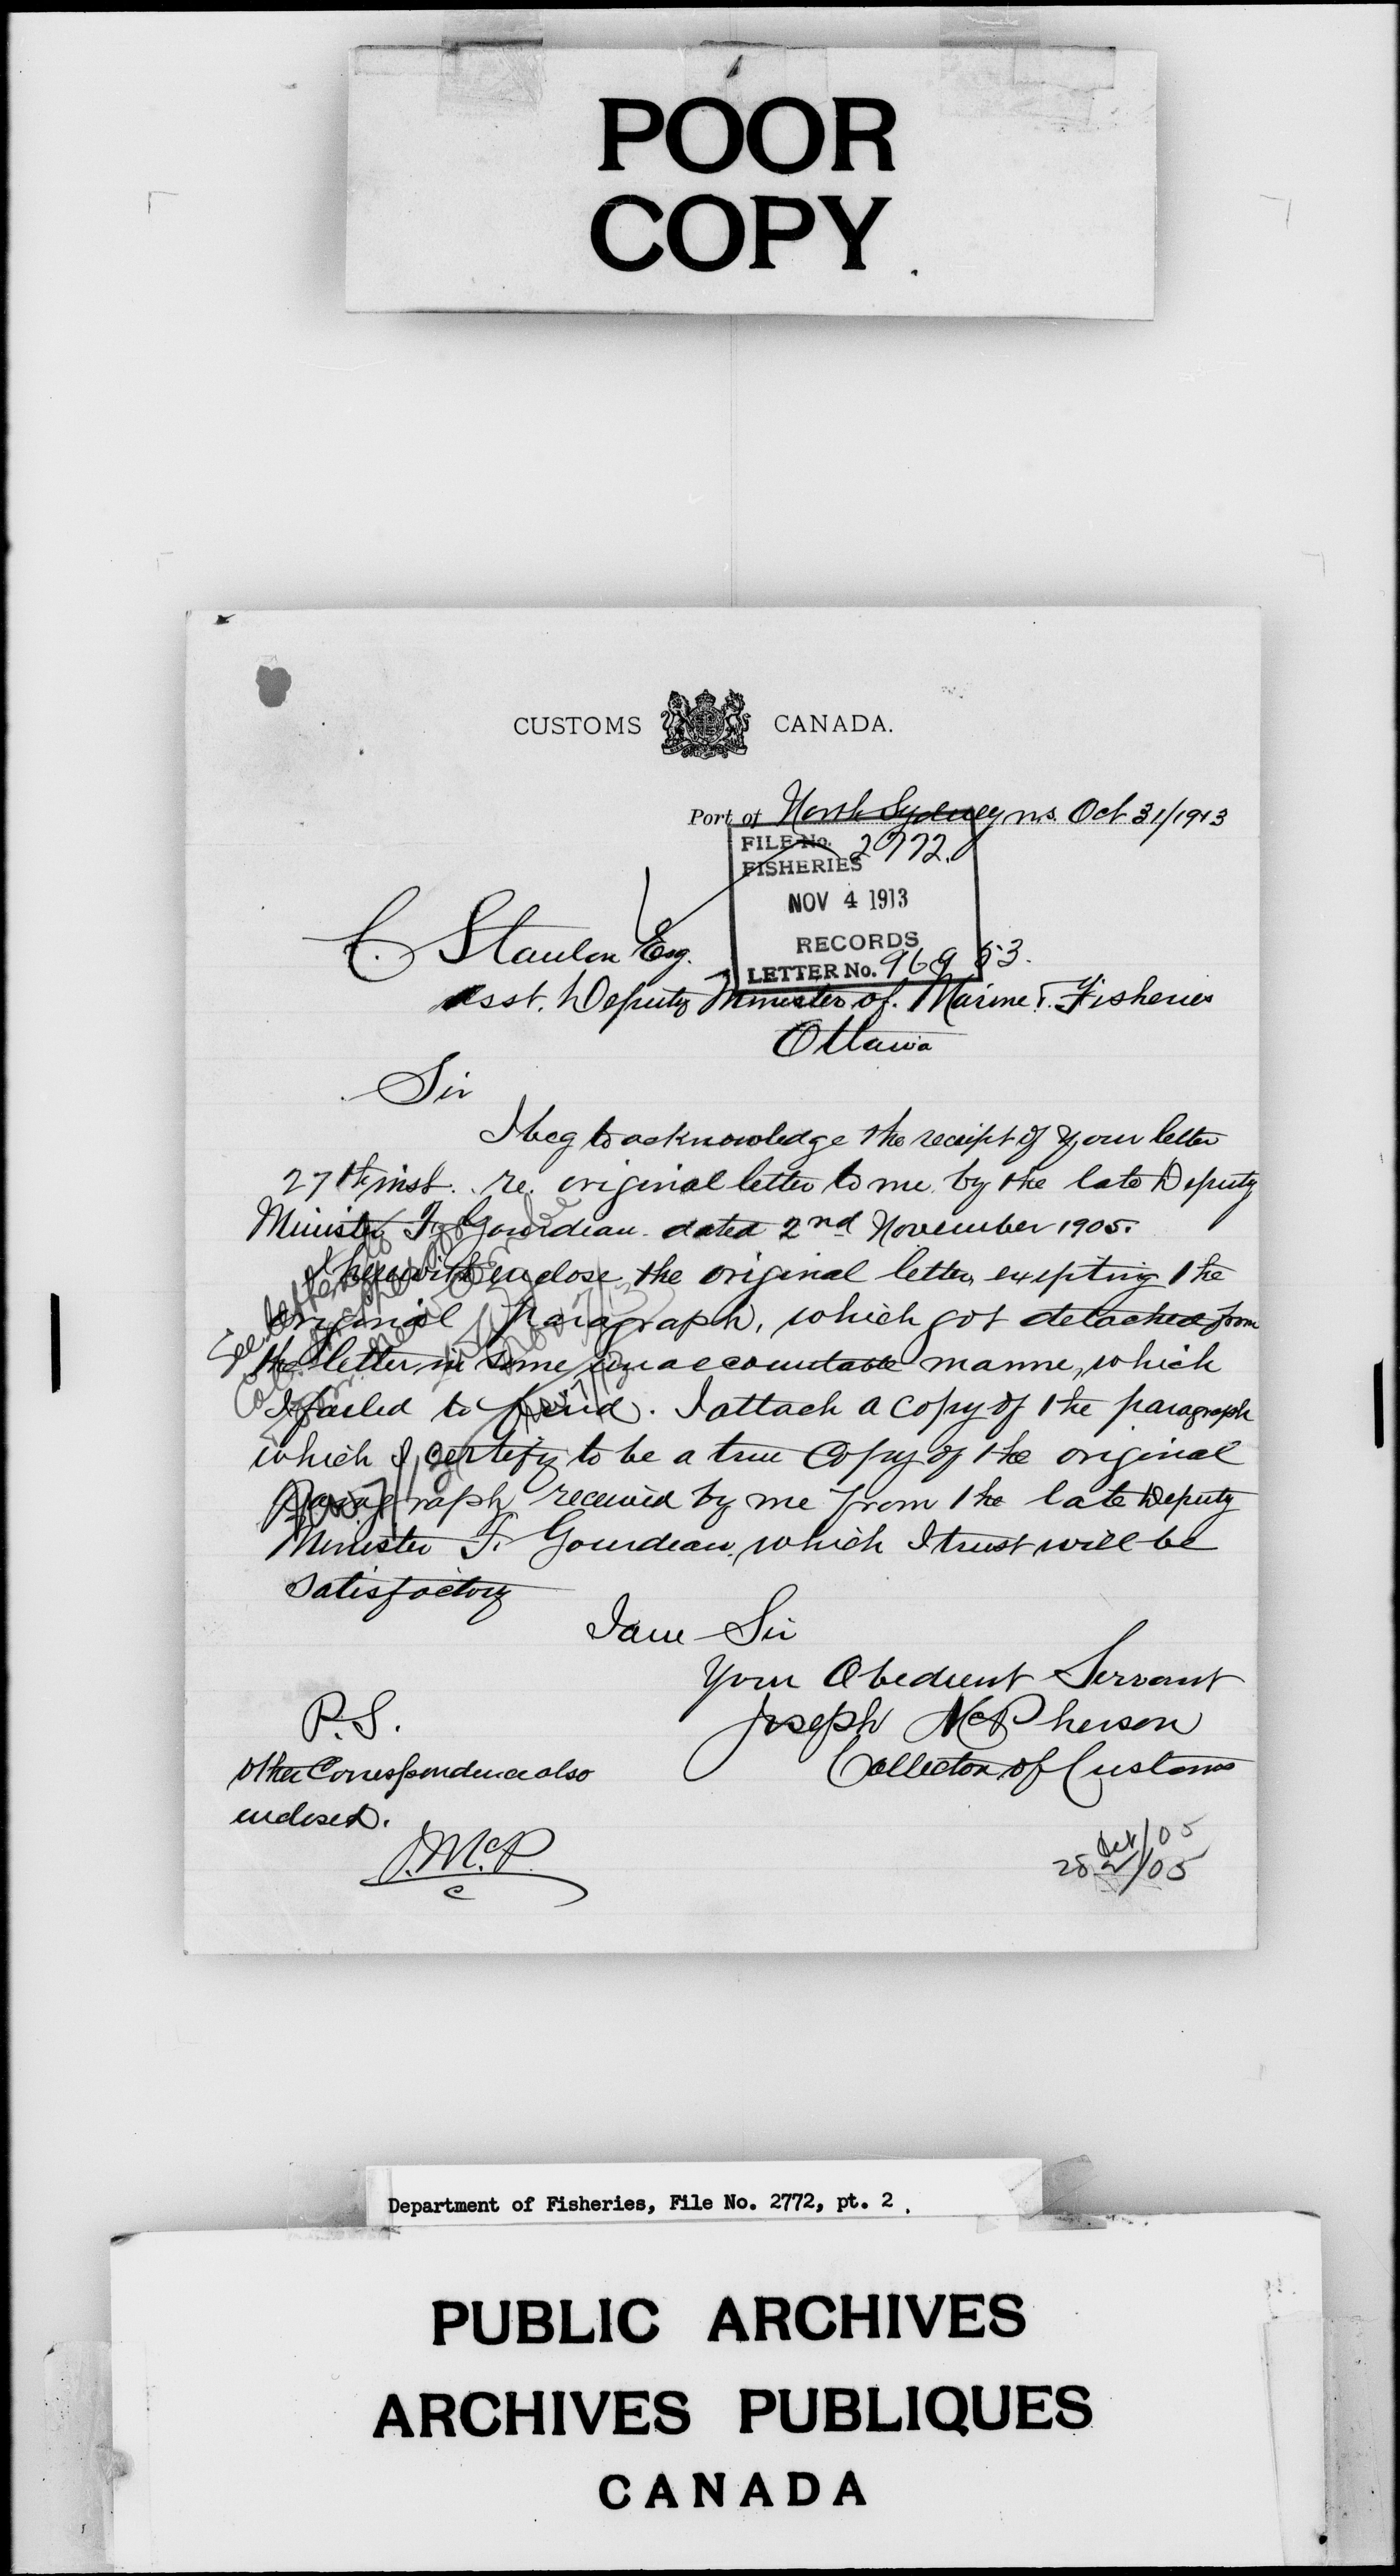 POOR
COPY
CUSTOMS CANADA.
Port of North Sydney n.s. Oct 31/1913
FILE No. 2772.
FISHERIES
NOV 4 1913
RECORDS
LETTER No. 96953.
C. Stanton Esq.
Asst. Deputy Minister of. Marine & Fisheries
Ottawa
Sir
I beg to acknowledge the receipt of your letter
27th inst. re. original letter to me by the late Deputy
Minister F. Gourdeau dated 2nd November 1905.
I herewith enclose the original letter, excepting the
original Paragraph, which got detached from
the letter in some unaccountable manne, which
I failed to find. I attach a copy of the paragraph
which I certify to be a true Copy of the original
Paragraph received by me from the late Deputy
Minister F. Gourdeau, which I trust will be
satisfactory
I am Sir
Your Obedient Servant
Joseph McPherson
Collector of Customs
P.S.
other Correspondence also
enclosed.
J. McP.
See letter to
Nov 7/13
Oct/05
28/05
Department of Fisheries, File No. 2772, pt. 2.
PUBLIC ARCHIVES
ARCHIVES PUBLIQUES
CANADA